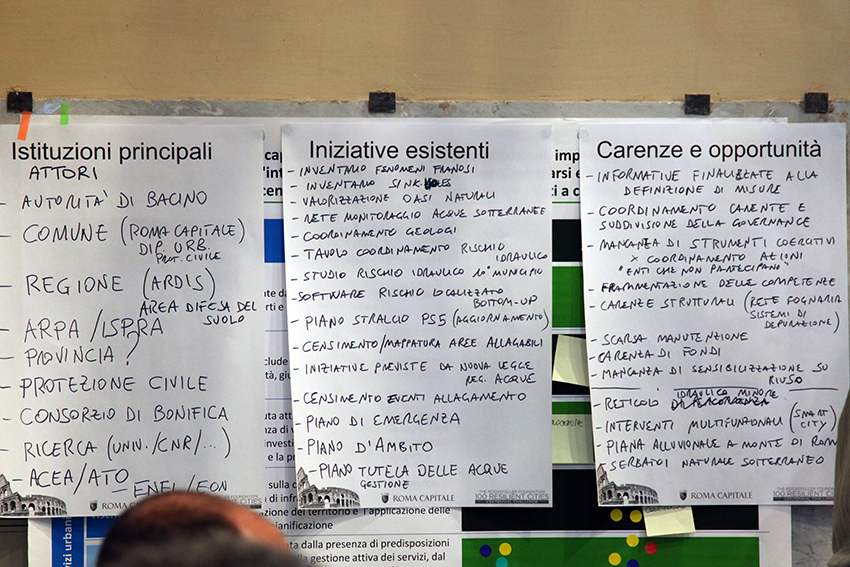 Istituzioni principali
ATTORI
- AUTORITA' DI BACINO
- COMUNE (ROMA CAPITALE)
DIP. URB.
PROT. CIVILE
- REGIONE (ARDIS)
AREA DIFESA DEL
SUOLO
- ARPA/ISPRA
- PROVINCIA?
- PROTEZIONE CIVILE
- CONSORZIO DI BONIFICA
- RICERCA (UNIV./CNR/...)
- ACEA/ATO
- ENEL/EON
Iniziative esistenti
- INVENTARIO FENOMENI FRANOSI
- INVENTARIO SINKHOLES
- VALORIZZAZIONE OASI NATURALI
- RETE MONITORAGGIO ACQUE SOTTERRANEE
- COORDINAMENTO GEOLOGI
- TAVOLO COORDINAMENTO RISCHIO
IDRAULICO
- STUDIO RISCHIO IDRAULICO 10° MUNICIPIO
- SOFTWARE RISCHIO LOCALIZZATO
BOTTOM-UP
- PIANO STRALCIO PS5 (AGGIORNAMENTO)
- CENSIMENTO/MAPPATURA AREE ALLAGABILI
- INIZIATIVE PREVISTE DA NUOVA LEGGE
REG. ACQUE
- CENSIMENTO EVENTI ALLAGAMENTO
- PIANO DI EMERGENZA
- PIANO D'AMBITO
- PIANO TUTELA DELLE ACQUE
GESTIONE
ROMA CAPITALE
THE ROCKEFELLER FOUNDATION
100 RESILIENT CITIES
Carenze e opportunità
- INFORMATIVE FINALIZZATE ALLA
DEFINIZIONE DI MISURE
- COORDINAMENTO CARENTE E
SUDDIVISIONE DELLA GOVERNANCE
- MANCANZA DI STRUMENTI COERCITIVI
X COORDINAMENTO AZIONI
"ENTI CHE NON PARTECIPANO"
- FRAMMENTAZIONE DELLE COMPETENZE
- CARENZE STRUTTURALI (RETE FOGNARIA
SISTEMI DI
DEPURAZIONE)
- SCARSA MANUTENZIONE
- CARENZA DI FONDI
- MANCANZA DI SENSIBILIZZAZIONE SU
RIUSO
IDRAULICO MINORE
- RETICOLO
- INTERVENTI MULTIFUNZIONALI (SMART
CITY)
- PIANA ALLUVIONALE A MONTE DI ROMA
- SERBATOI NATURALE SOTTERRANEO
ROMA CAPITALE
THE ROCKEFELLER FOUNDATION
100 RESILIENT CITIES
ROMA CAPITALE
di infra
del territorio e l'applicazione delle
pianificazione
data dalla presenza di predisposizioni
gestione attiva dei servizi, dal